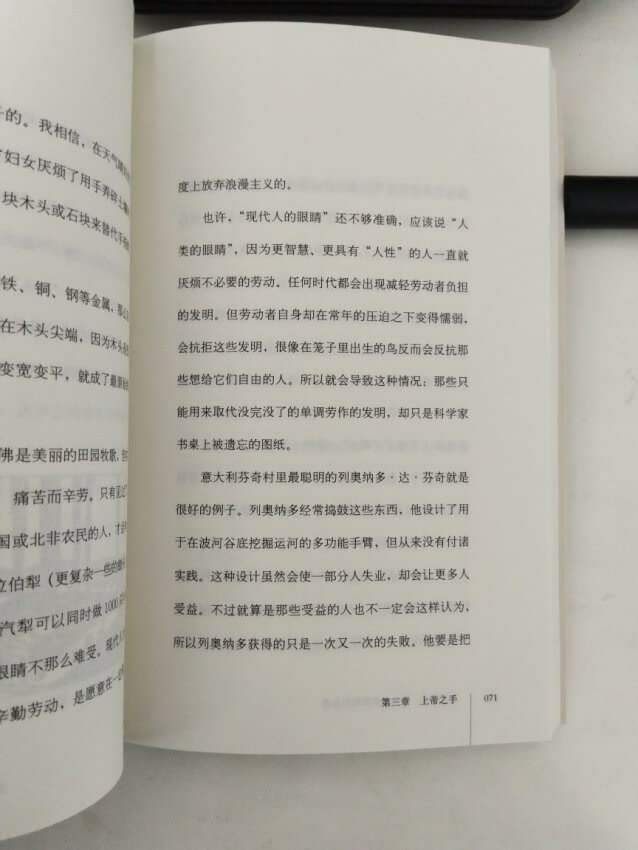 的。我相信，在天气
妇女厌烦了用手弄碎土
块木头或石块来替代手
铁、铜、钢等金属，那么
在木头尖端，因为木头
变宽变平，就成了最原始
佛是美丽的田园牧歌，但
痛苦而辛劳。只有见过
国或北非农民的人，才
立伯犁（更复杂一些的
汽犁可以同时做1000
眼睛不那么难受。现代人
辛勤劳动，是愿意在一定
度上放弃浪漫主义的。
也许，“现代人的眼睛”还不够准确，应该说“人
类的眼睛”，因为更智慧、更具有“人性”的人一直就
厌烦不必要的劳动。任何时代都会出现减轻劳动者负担
的发明。但劳动者自身却在常年的压迫之下变得懦弱，
会抗拒这些发明，很像在笼子里出生的鸟反而会反抗那
些想给它们自由的人。所以就会导致这种情况：那些只
能用来取代没完没了的单调劳作的发明，却只是科学家
书桌上被遗忘的图纸。
意大利芬奇村里最聪明的列奥纳多·达·芬奇就是
很好的例子。列奥纳多经常捣鼓这些东西，他设计了用
于在波河谷底挖掘运河的多功能手臂，但从来没有付诸
实践。这种设计虽然会使一部分人失业，却会让更多人
受益。不过就算是那些受益的人也不一定会这样认为，
所以列奥纳多获得的只是一次又一次的失败。他要是把
第三章 上帝之手 071